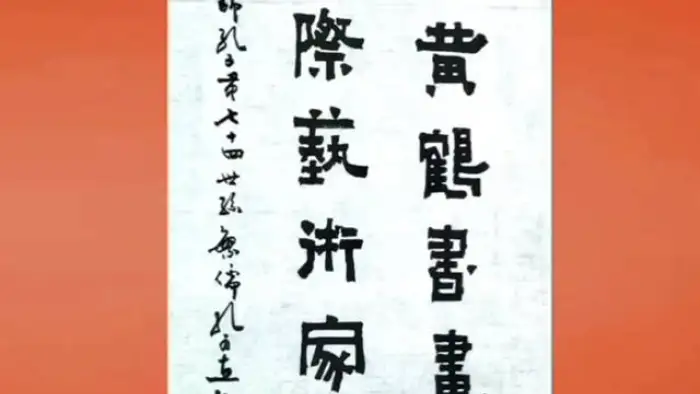 黄鶴書畫
際藝術家
師孔子第七十四世孫